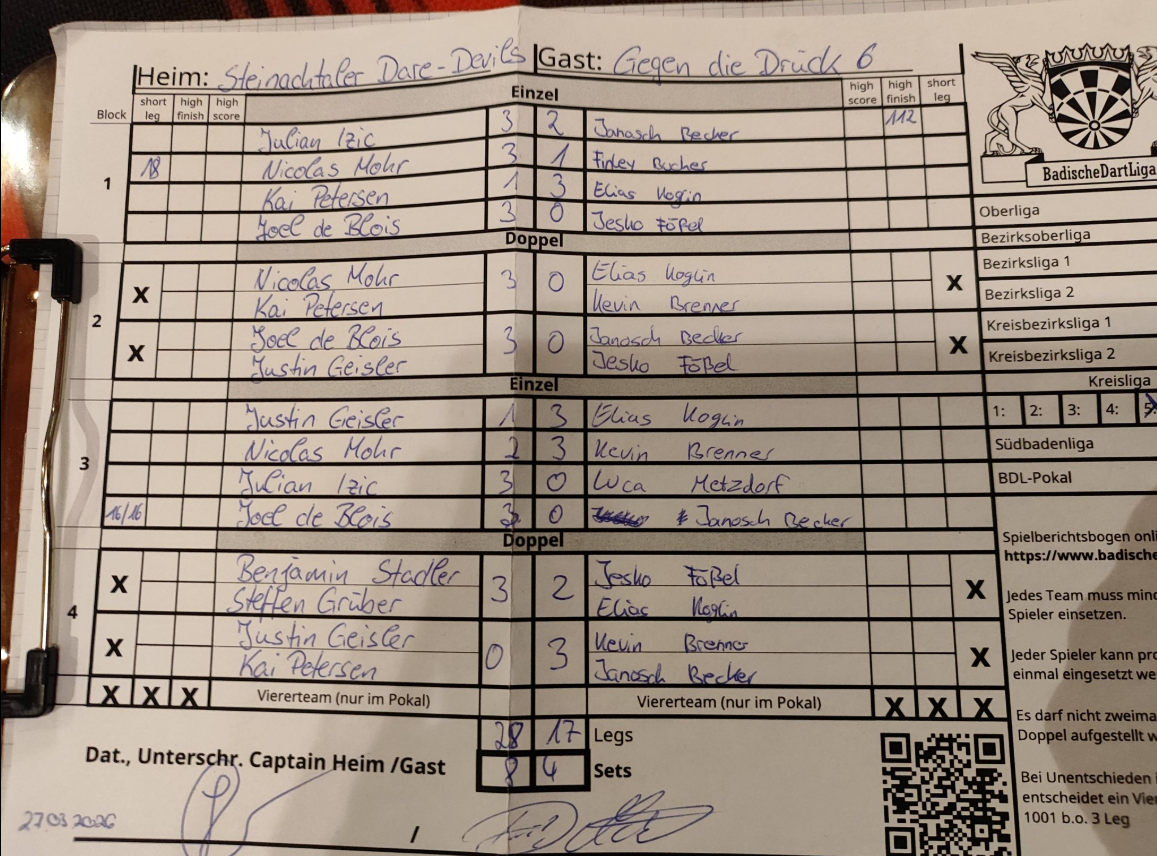 Heim: Steinachtaler Dare-Devils Gast: Gegen die Drück 6
Block short leg high finish high score Einzel high score high finish short leg
1
Julian Izic 3 2 Janosch Becker 112
18 Nicolas Mohr 3 1 Finley Bucher
Kai Petersen 1 3 Elias Koglin
Joel de Blois 3 0 Jesko Fößel
Doppel
2
X Nicolas Mohr 3 0 Elias Koglin X
Kai Petersen Kevin Brenner
X Joel de Blois 3 0 Janosch Becker X
Justin Geisler Jesko Fößel
Einzel
3
Justin Geisler 1 3 Elias Koglin
Nicolas Mohr 2 3 Kevin Brenner
Julian Izic 3 0 Luca Metzdorf
16/16 Joel de Blois 3 0 Janosch Becker
Doppel
4
X Benjamin Stadler 3 2 Jesko Fößel X
Steffen Grüber Elias Koglin
X Justin Geisler 0 3 Kevin Brenner X
Kai Petersen Janosch Becker
X X X Viererteam (nur im Pokal) Viererteam (nur im Pokal) X X X
28 17 Legs
Dat., Unterschr. Captain Heim /Gast 8 4 Sets
27.03.2026 /
BadischeDartLiga
Oberliga
Bezirksoberliga
Bezirksliga 1
Bezirksliga 2
Kreisbezirksliga 1
Kreisbezirksliga 2
Kreisliga
1: 2: 3: 4: 5:
Südbadenliga
BDL-Pokal
Spielberichtsbogen onli
https://www.badische
Jedes Team muss mind
Spieler einsetzen.
Jeder Spieler kann pro
einmal eingesetzt we
Es darf nicht zweima
Doppel aufgestellt w
Bei Unentschieden i
entscheidet ein Vier
1001 b.o. 3 Leg